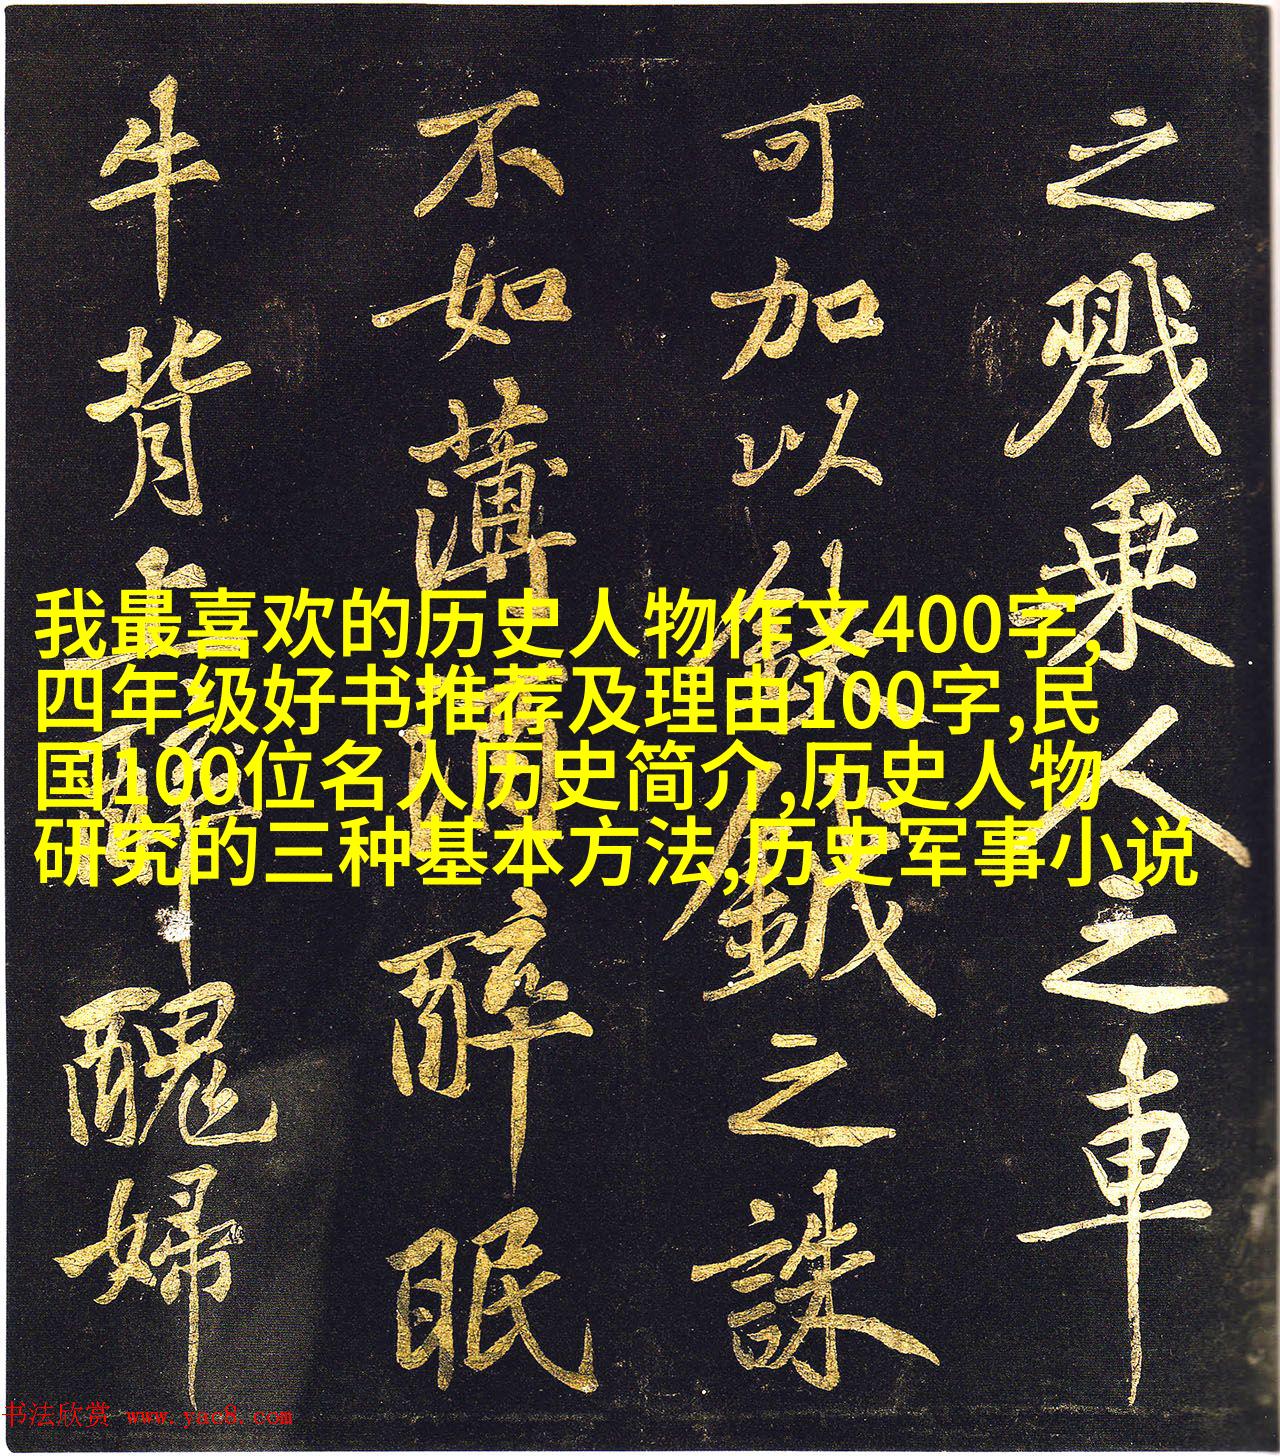 之戮乘人之車
可加以鈇鉞之誅
不如薄酒醉眠
牛背上醜婦
我最喜欢的历史人物作文400字,
四年级好书推荐及理由100字,民
国100位名人历史简介,历史人物
研究的三种基本方法,历史军事小说
书法欣赏 www.yac8.com